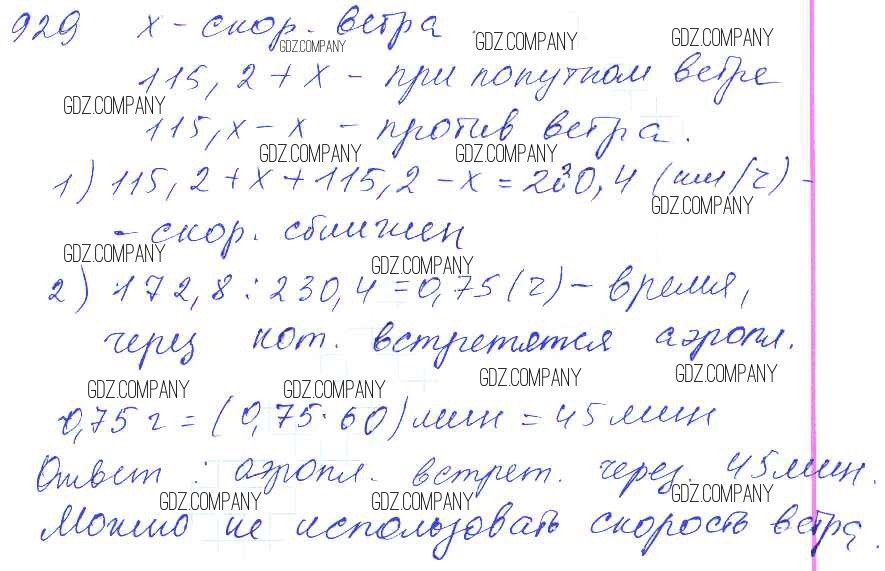 929 x - скор. ветра
GDZ.COMPANY GDZ.COMPANY GDZ.COMPANY
115,2 + x - при попутном ветре
GDZ.COMPANY
115,x - x - против ветра.
GDZ.COMPANY GDZ.COMPANY
1) 115,2 + x + 115,2 - x = 230,4 (км/ч) -
GDZ.COMPANY
- скор. сближен
GDZ.COMPANY GDZ.COMPANY
2) 172,8 : 230,4 = 0,75 (ч) - время,
через кот. встретятся аэропл.
GDZ.COMPANY GDZ.COMPANY GDZ.COMPANY GDZ.COMPANY
0,75 ч = (0,75 · 60) мин = 45 мин
Ответ : аэропл. встрет. через. 45 мин.
GDZ.COMPANY GDZ.COMPANY GDZ.COMPANY
Можно не использовать скорость ветра.